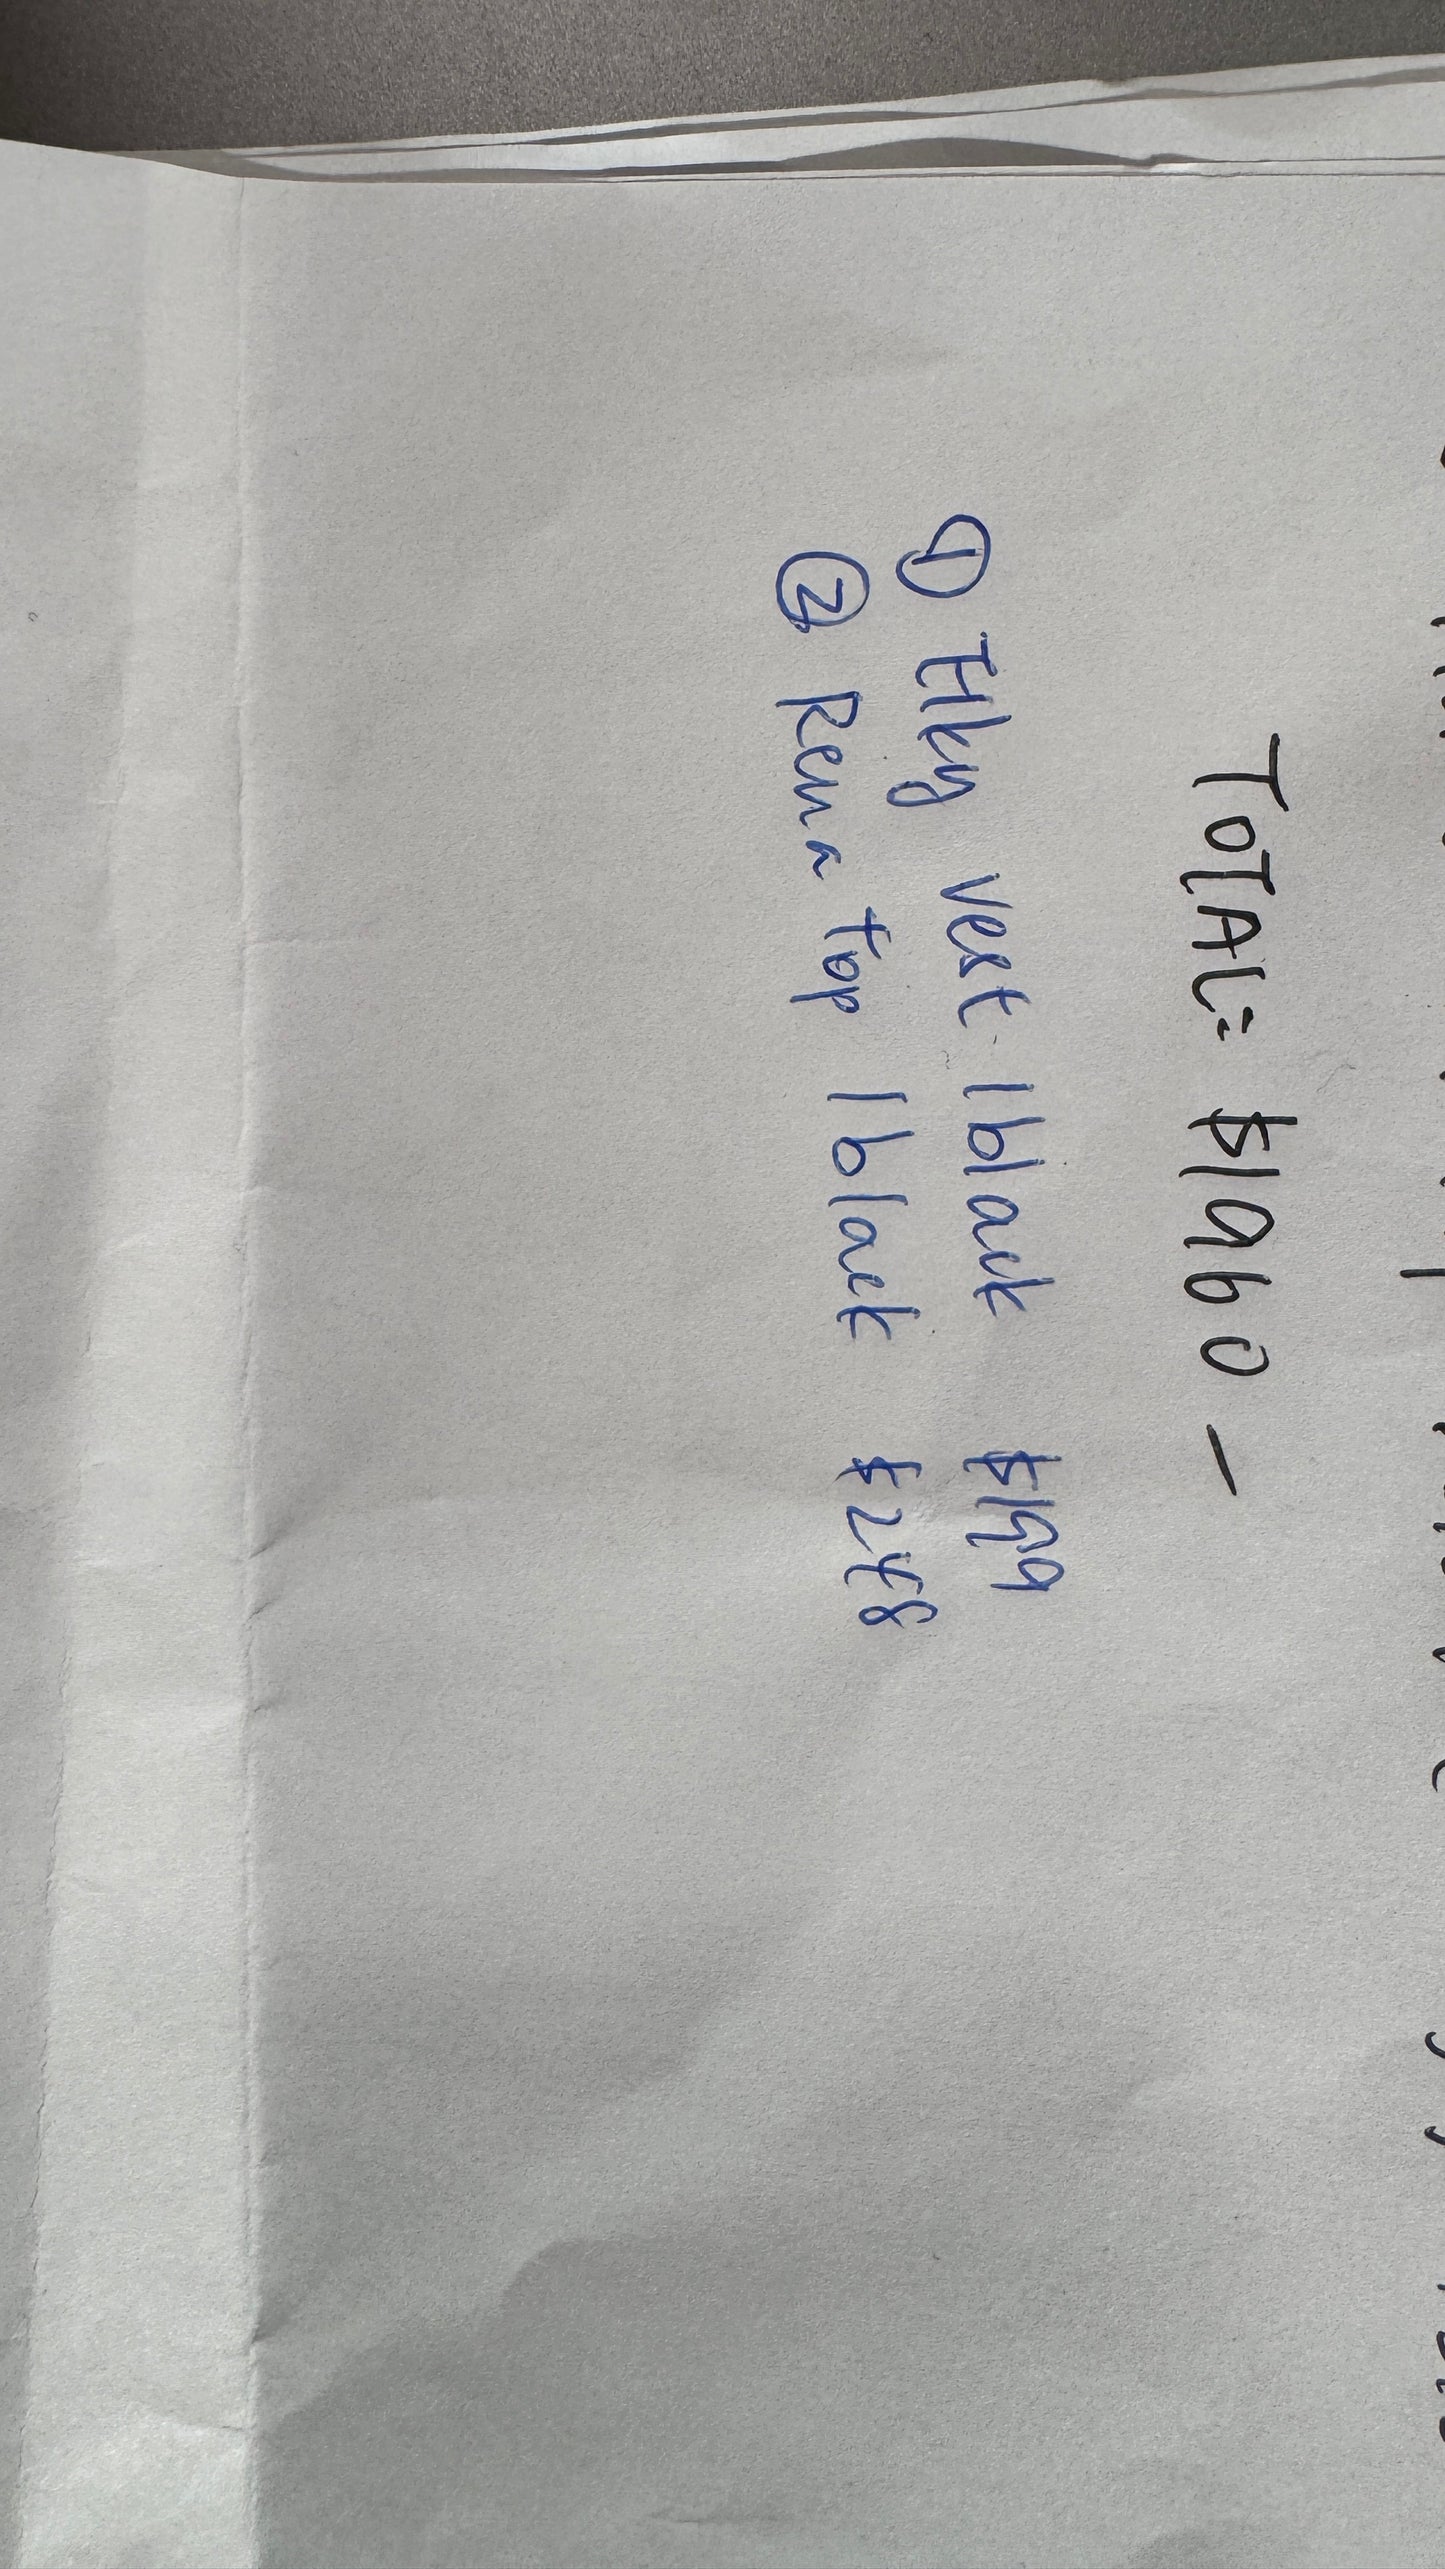 TOTAL= $1960 –
① Hky vest 1 black $159
② Rena top 1 black $248